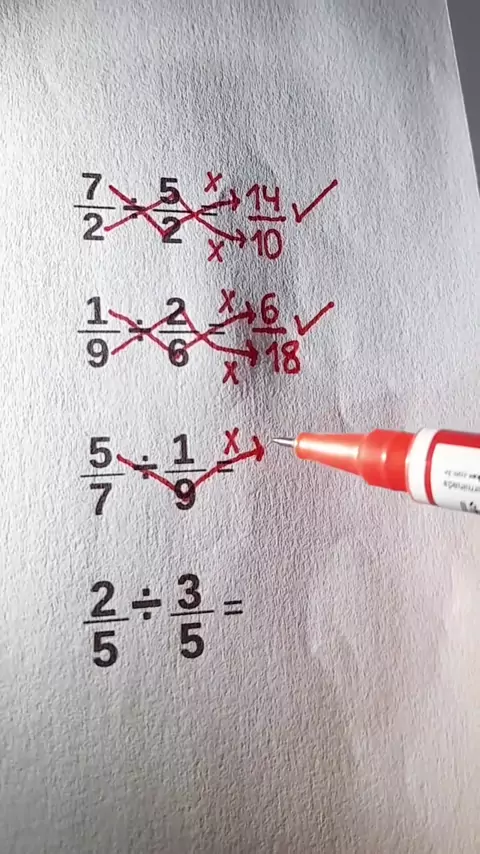 7/2 ÷ 5/2 = x x 14/10 ✓
1/9 ÷ 2/6 = x x 6/18 ✓
5/7 ÷ 1/9 = x
2/5 ÷ 3/5 =